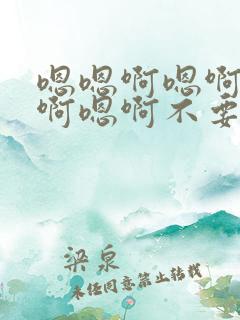 嗯嗯啊嗯啊
啊嗯啊不要
梁泉
未经同意禁止转载